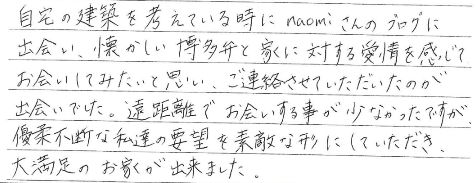 自宅の建築を考えている時に naomiさんのブログに
出会い、懐かしい博多弁と家に対する愛情を感じて
お会いしてみたいと思い、ご連絡させていただいたのが
出会いでした。遠距離でお会いする事が少なかったですが、
優柔不断な私達の要望を素敵な形にしていただき、
大満足のお家が出来ました。